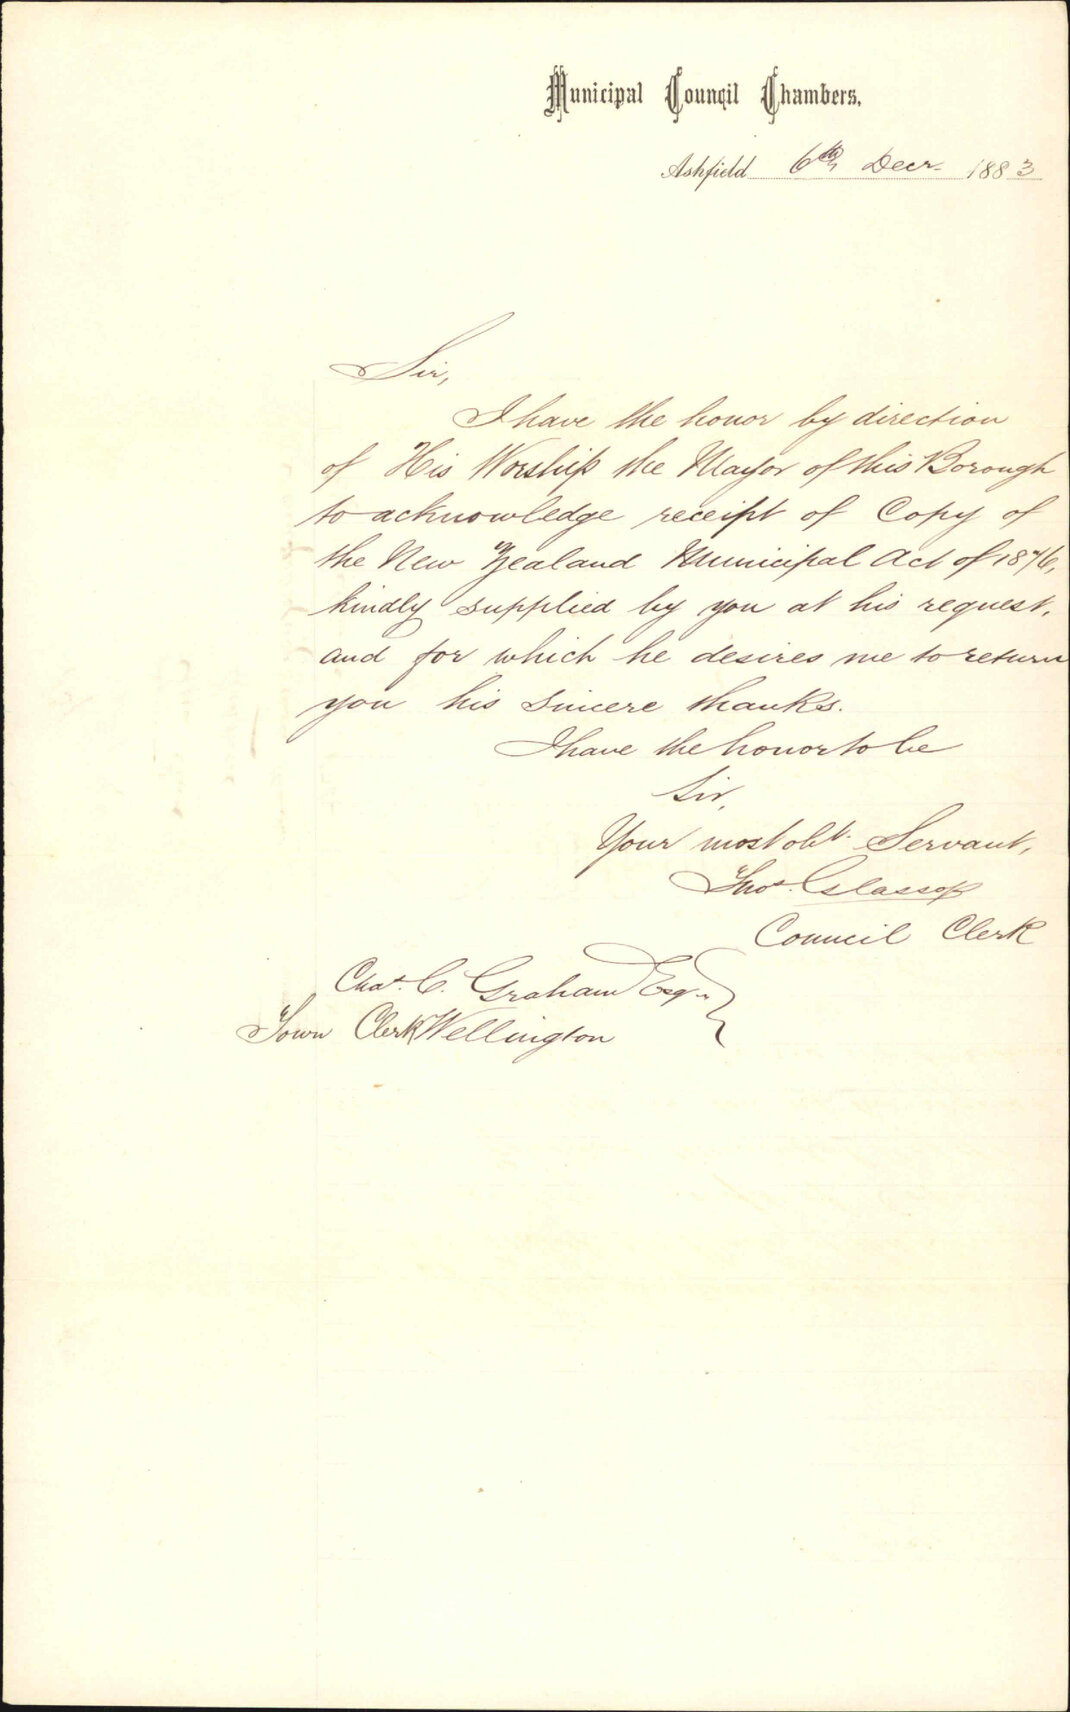 Municipal Council Chambers.
Ashfield 6th Decr. 1883
Sir,
I have the honor by direction
of His Worship the Mayor of this Borough
to acknowledge receipt of Copy of
the New Zealand Municipal Act of 1876,
kindly supplied by you at his request,
and for which he desires me to return
you his sincere thanks.
I have the honor to be
Sir,
Your most obt. Servant,
Thos. Glassop
Council Clerk
Chas. C. Graham Esqr.
Town Clerk Wellington